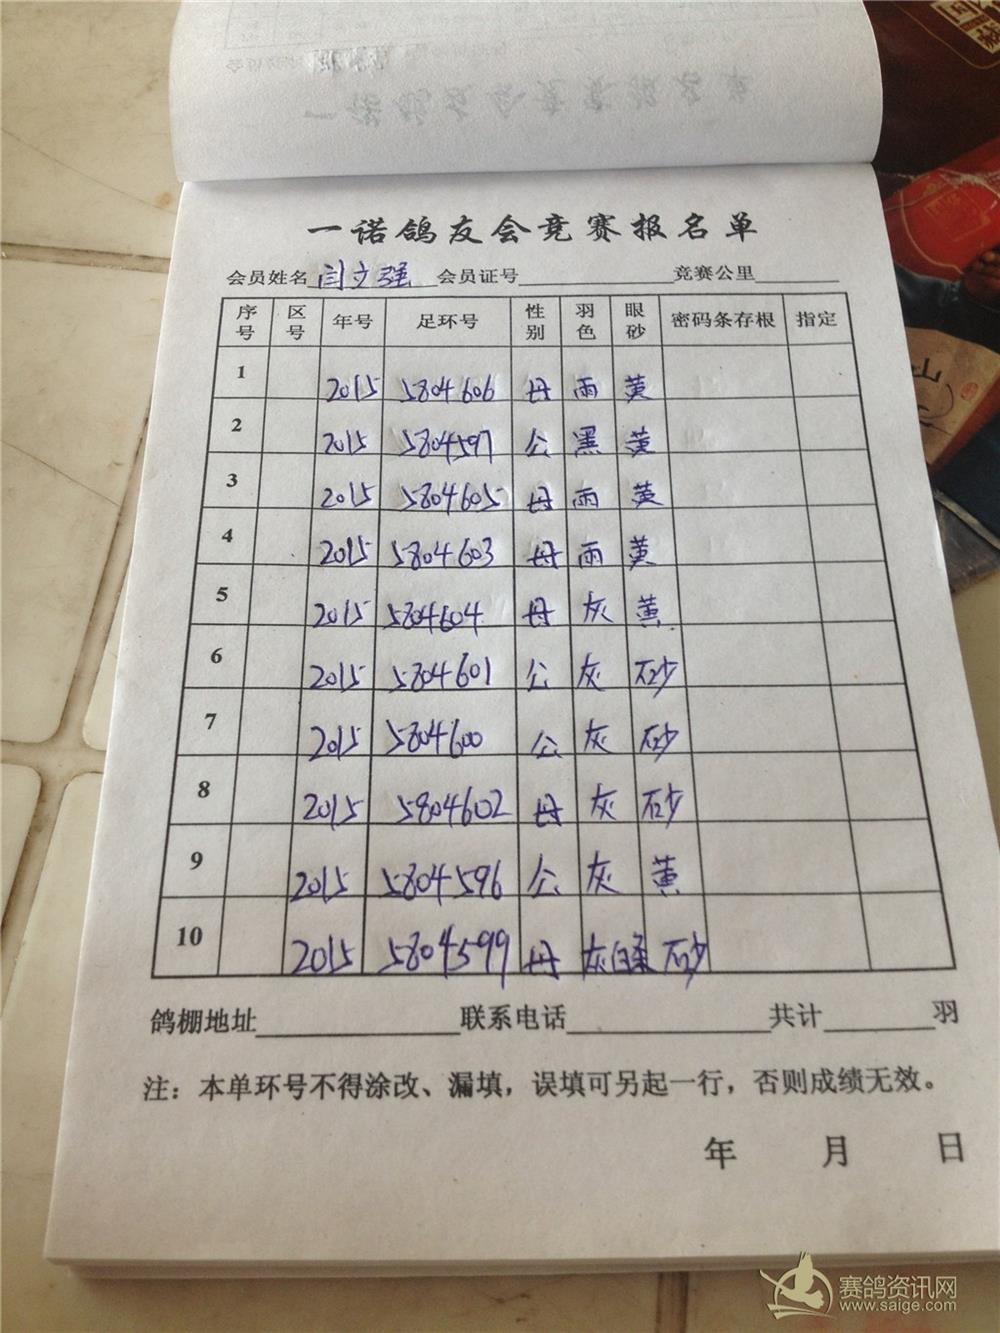 一诺鸽友会竞赛报名单
会员姓名 闫立强 会员证号 竞赛公里
序号 区号 年号 足环号 性别 羽色 眼砂 密码条存根 指定
1 2015 5804606 母 雨 黄
2 2015 5804597 公 黑 黄
3 2015 5804605 母 雨 黄
4 2015 5804603 母 雨 黄
5 2015 5804604 母 灰 黄
6 2015 5804601 公 灰 砂
7 2015 5804600 公 灰 砂
8 2015 5804602 母 灰 砂
9 2015 5804596 公 灰 黄
10 2015 5804599 母 灰白条 砂
鸽棚地址 联系电话 共计 羽
注：本单环号不得涂改、漏填，误填可另起一行，否则成绩无效。
年 月 日
山
赛鸽资讯网
www.saige.com